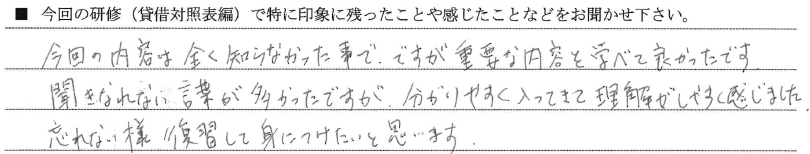 ■ 今回の研修（貸借対照表編）で特に印象に残ったことや感じたことなどをお聞かせ下さい。
今回の内容は全く知らなかった事で、ですが重要な内容を学べて良かったです
聞きなれない言葉が多かったですが、分かりやすく入ってきて理解がしやすく感じました。
忘れない様復習して身につけたいと思います。